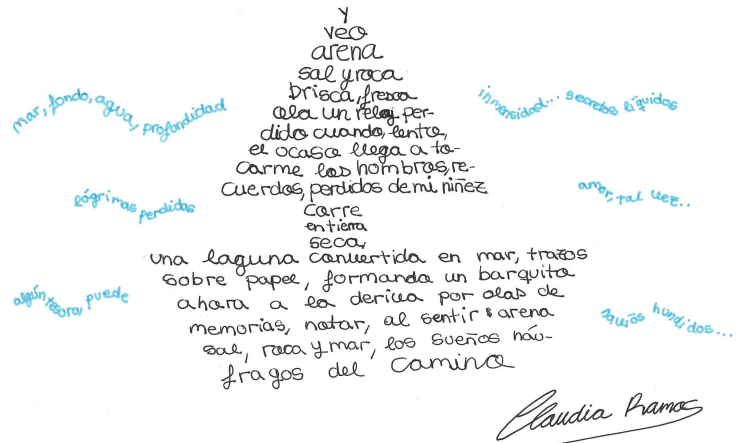 y
veo
arena
sal y roca
brisca, fresca
ola un reloj per-
dido cuando, lento,
el ocaso llega a to-
carme los hombros, re-
cuerdos, perdidos de mi niñez
corre
en tierra
seca,
una laguna convertida en mar, trazos
sobre papel, formando un barquito
ahora a la deriva por olas de
memorias, notar, al sentir arena
sal, roca y mar, los sueños náu-
fragos del camino
mar, fondo, agua, profundidad
inmensidad... secretos líquidos
lágrimas perdidas
amor, tal vez..
algún tesoro, puede
navíos hundidos...
Claudia Ramos